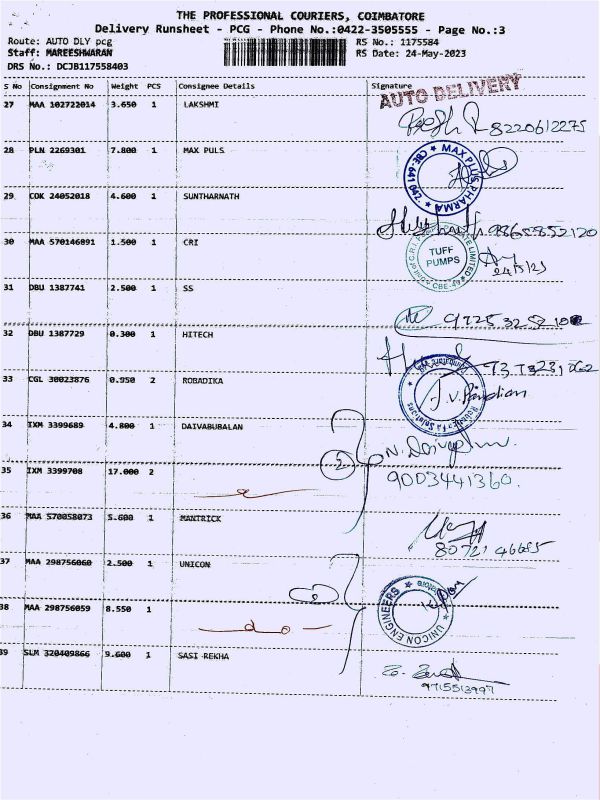 THE PROFESSIONAL COURIERS, COIMBATORE
Delivery Runsheet - PCG - Phone No.:0422-3505555 - Page No.:3
Route: AUTO DLY pcg RS No.: 1175584
Staff: MAREESHWARAN RS Date: 24-May-2023
DRS No.: DCJB117558403
S No Consignment No Weight PCS Consignee Details Signature
AUTO DELIVERY
27 MAA 102722014 3.650 1 LAKSHMI
8220612275
28 PLN 2269301 7.800 1 MAX PULS
MAX PLUS PHARMA CBE-641 042
29 COK 24052018 4.600 1 SUNTHARNATH
9868852120
30 MAA 570146891 1.500 1 CRI
TUFF PUMPS
24/5/23
31 DBU 1387741 2.500 1 SS
32 DBU 1387729 0.300 1 HITECH
33 CGL 30023876 0.950 2 ROBADIKA
34 IXM 3399689 4.800 1 DAIVABUBALAN
35 IXM 3399708 17.000 2
2
9003441360.
36 MAA 570058073 5.600 1 MANTRICK
80721 46685
37 MAA 298756060 2.500 1 UNICON
UNICON ENGINEERS
38 MAA 298756059 8.550 1
do
39 SLM 320409866 9.600 1 SASI REKHA
9715513997